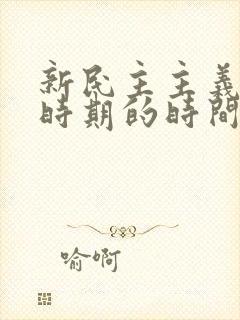 新民主主義
時期的時間
喻啊